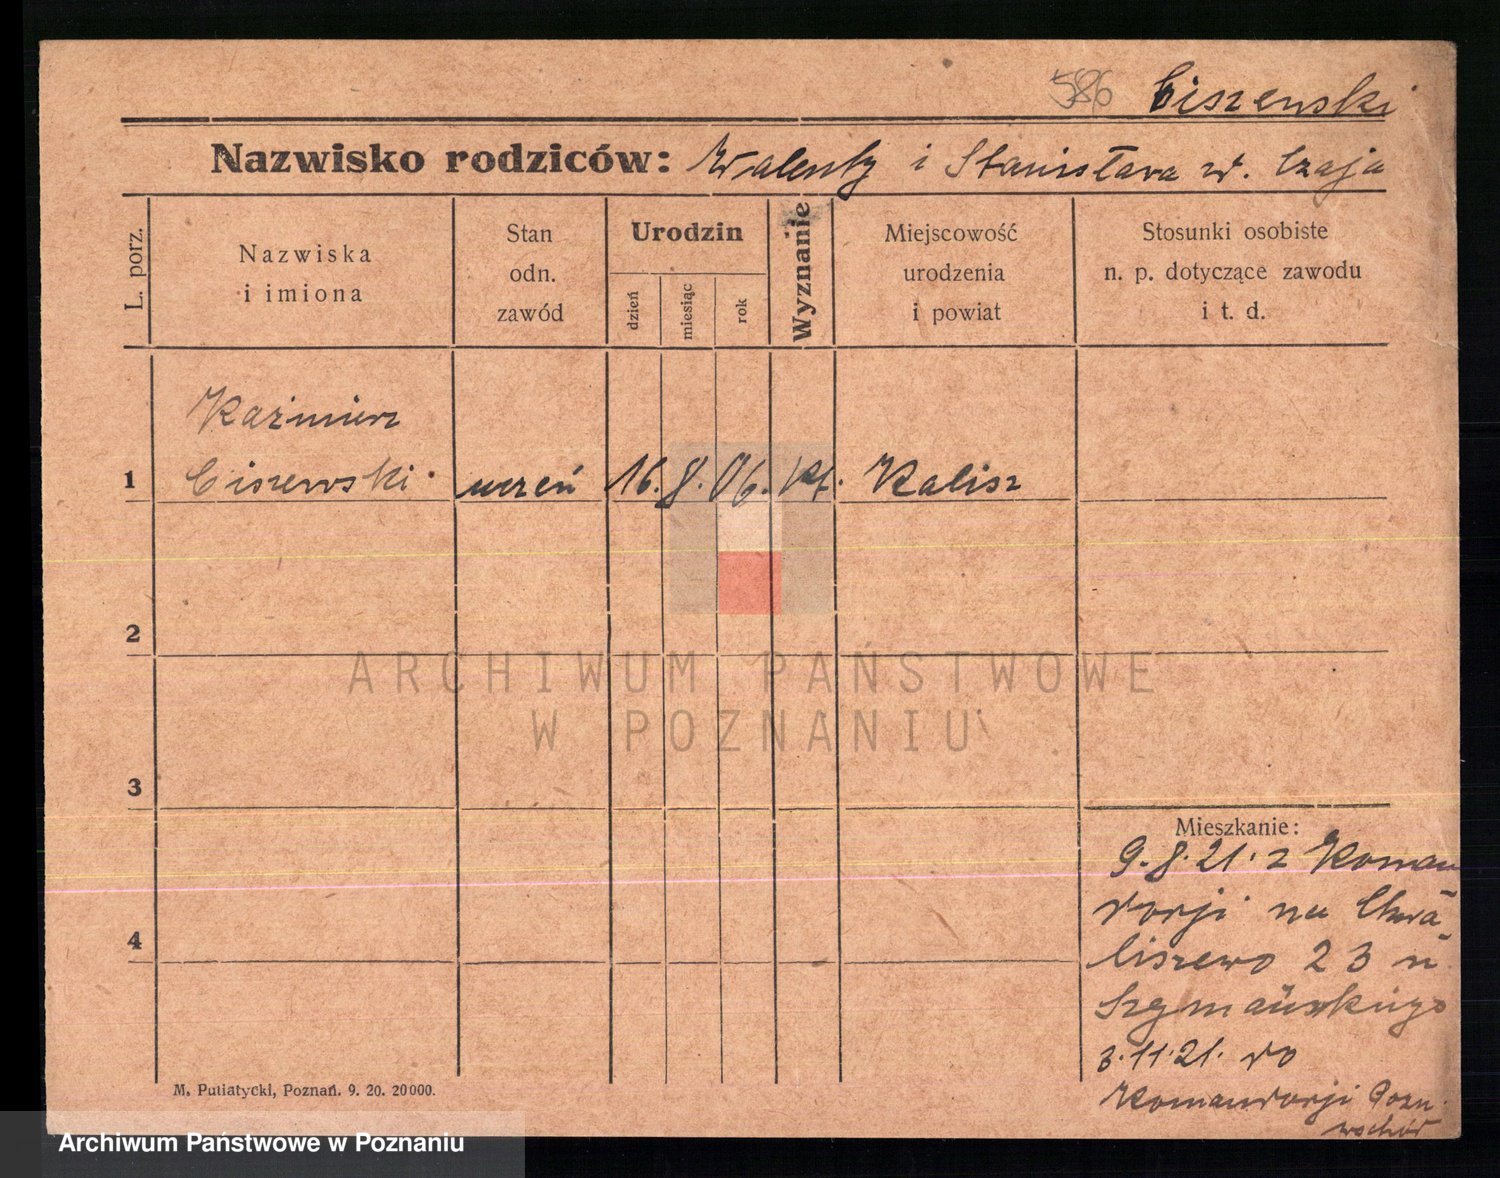 586 Ciszewski
Nazwisko rodziców: Walenty i Stanisława w. Czaja
L. porz.
Nazwiska
i imiona
Stan
odn.
zawód
Urodzin
dzień
miesiąc
rok
Wyznanie
Miejscowość
urodzenia
i powiat
Stosunki osobiste
n. p. dotyczące zawodu
i t. d.
Kaźmierz
1 Ciszewski uczeń 16. 8. 06. kt. Kalisz
2
3
4
ARCHIWUM PAŃSTWOWE
W POZNANIU
Mieszkanie:
9.8.21. z Koman
dorji na Chwa
liszewo 23 u
Szymańskiego
3.11.21. do
Komandorji Pozn.
wschód
M. Putiatycki, Poznań. 9. 20. 20000.
Archiwum Państwowe w Poznaniu